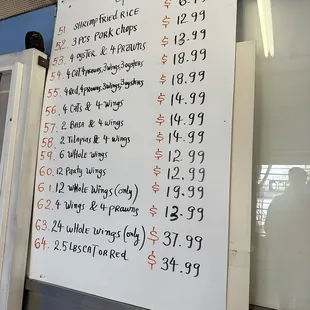 51 Shrimp Fried Rice $ 6.99
52. 3 Pcs Pork Chops $ 12.99
53. 4 oyster & 4 Prawns $ 13.99
54. 4 Cat,4 prawns,3wings,3oysters $ 18.99
55. 4 Red,4 prawns,3wings,3oysters $ 18.99
56. 4 Cats & 4 wings $ 14.99
57. 2 Basa & 4 wings $ 14.99
58. 2 Tilapias & 4 wings $ 14.99
59. 6 Whole wings $ 12.99
60. 12 Party wings $ 12.99
61. 12 whole wings (only) $ 19.99
62. 4 wings & 4 prawns $ 13.99
63. 24 whole wings (only) $ 37.99
64. 2.5 Lbs CAT or Red $ 34.99